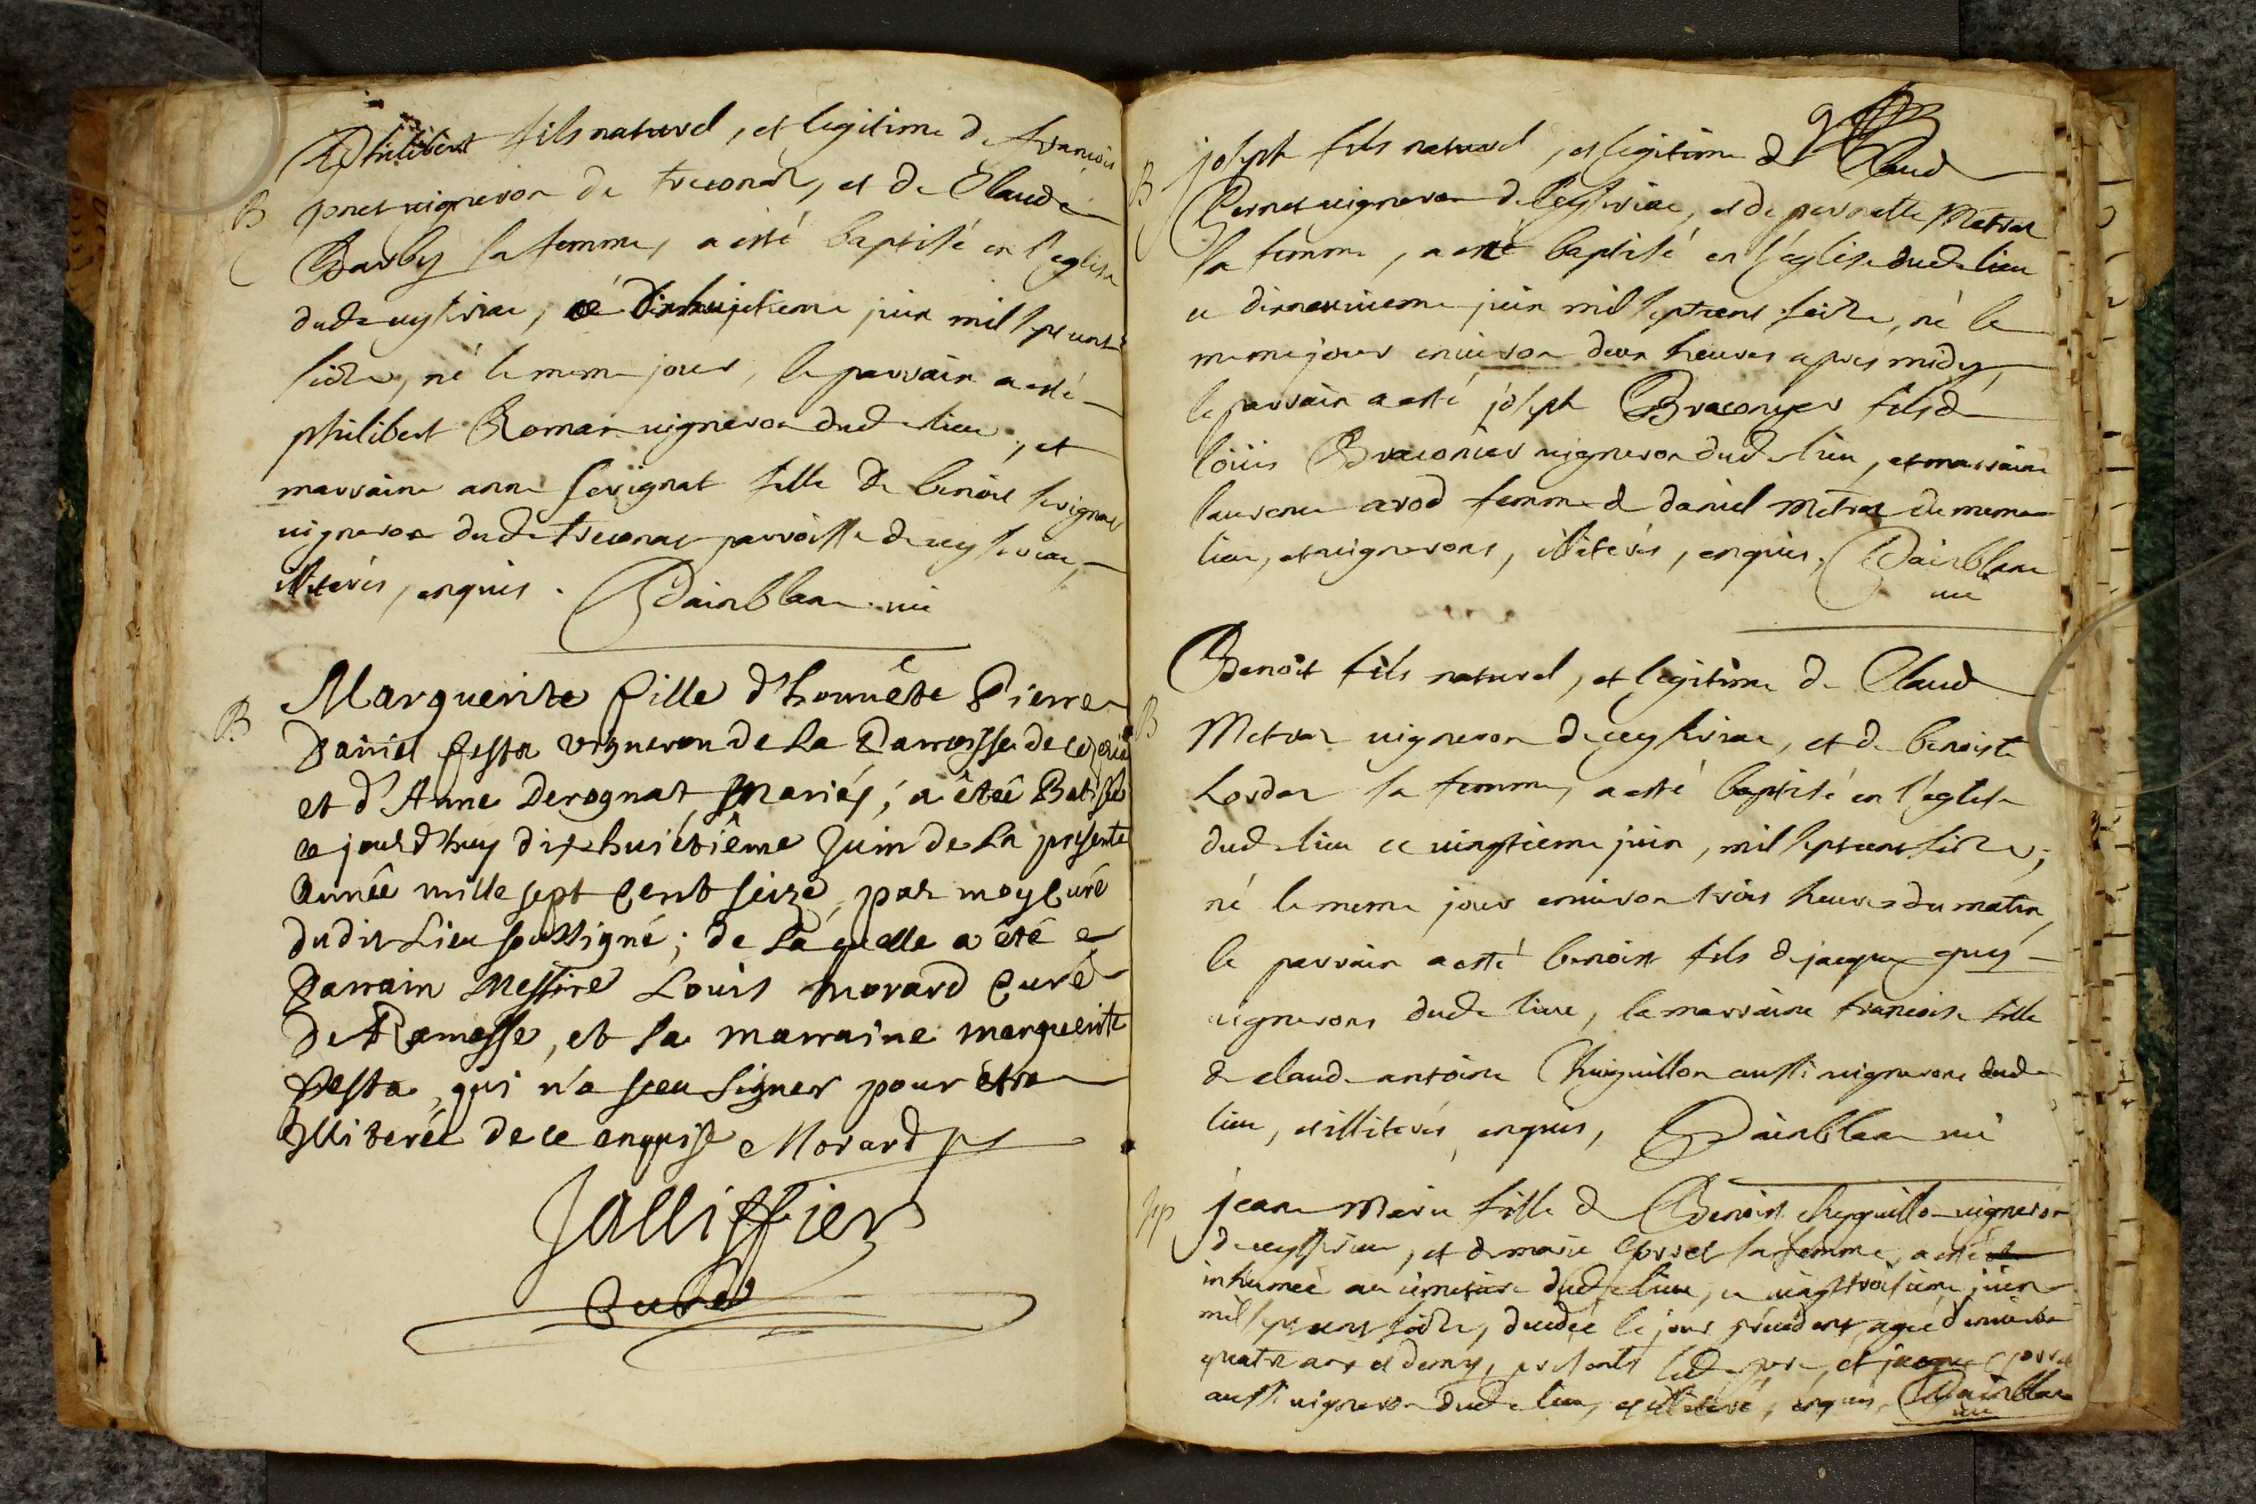 Philibert fils naturel, et legitime de francois
B
vigneron de treconas, et de Claude
Barby sa femme, a esté baptisé en l'eglise
dud ceyseriac, ce dixhuictieme juin mil sept cents
seize, né le meme jour, le parrain a esté
philibert Roman vigneron dud lieu, et
marraine anne serignat fille de benoit serignat
vigneron dud treconas parroisse de ceyseriac,
illiterés, enquis. Painblanc curé
B
Marguerite fille d'honnête Pierre
Daniel festa vigneron de la Parroisse de
et d'Anne Derognat Mariés; a êtée Batisée
ce jourd'huy dixhuictième Juin de la presente
Année mille sept Cent seize, par moy Curé
dudit Lieu soussigné; de laquelle a été
Parrain Messire Louis Morard Curé
de Ramasse, et la marraine marguerite
festa, qui n'a sceu signer pour être
Illiterée de ce enquise Morard
Jalliffier
Curé
B
joseph fils naturel, et legitime de Claud
Pernet vigneron de Ceyseriac, et de pernette Metral
sa femme, a esté baptisé en l'église dud lieu
ce dixneuvieme juin mil sept cent seize, né le
meme jour environ deux heures apres midy,
le parrain a esté joseph Braconyer fils de
loüis Braconier vigneron dud lieu, et marraine
laurence arod femme de daniel Metral du meme
lieu, et vignerons, illiterés, enquis, Painblanc
curé
Benoit fils naturel, et legitime de Claud
B
Metral vigneron de ceyseriac, et de benoiste
sa femme, a esté baptisé en l'eglise
dud lieu ce vingtieme juin, mil sept cent seize;
né le meme jour environ trois heures du matin,
le parrain a esté benoist fils de jacque guy
vignerons dud lieu, la marraine francoise fille
de claude antoine Chiguillon aussi vignerons dud
lieu, et illiterés, enquis, Painblanc curé
jeane Marie fille de Benoist cheguillon vigneron
de ceyseriac, et de marie sa femme, a esté
inhumeé au cimetiere dud lieu, ce vingt troisieme juin
mil sept cent seize, decedeé le jour précédent, agée d'environ
quatre ans et demy, presents led pere, et jacque
aussi vigneron dud lieu, et illiteré, enquis, Painblanc
curé